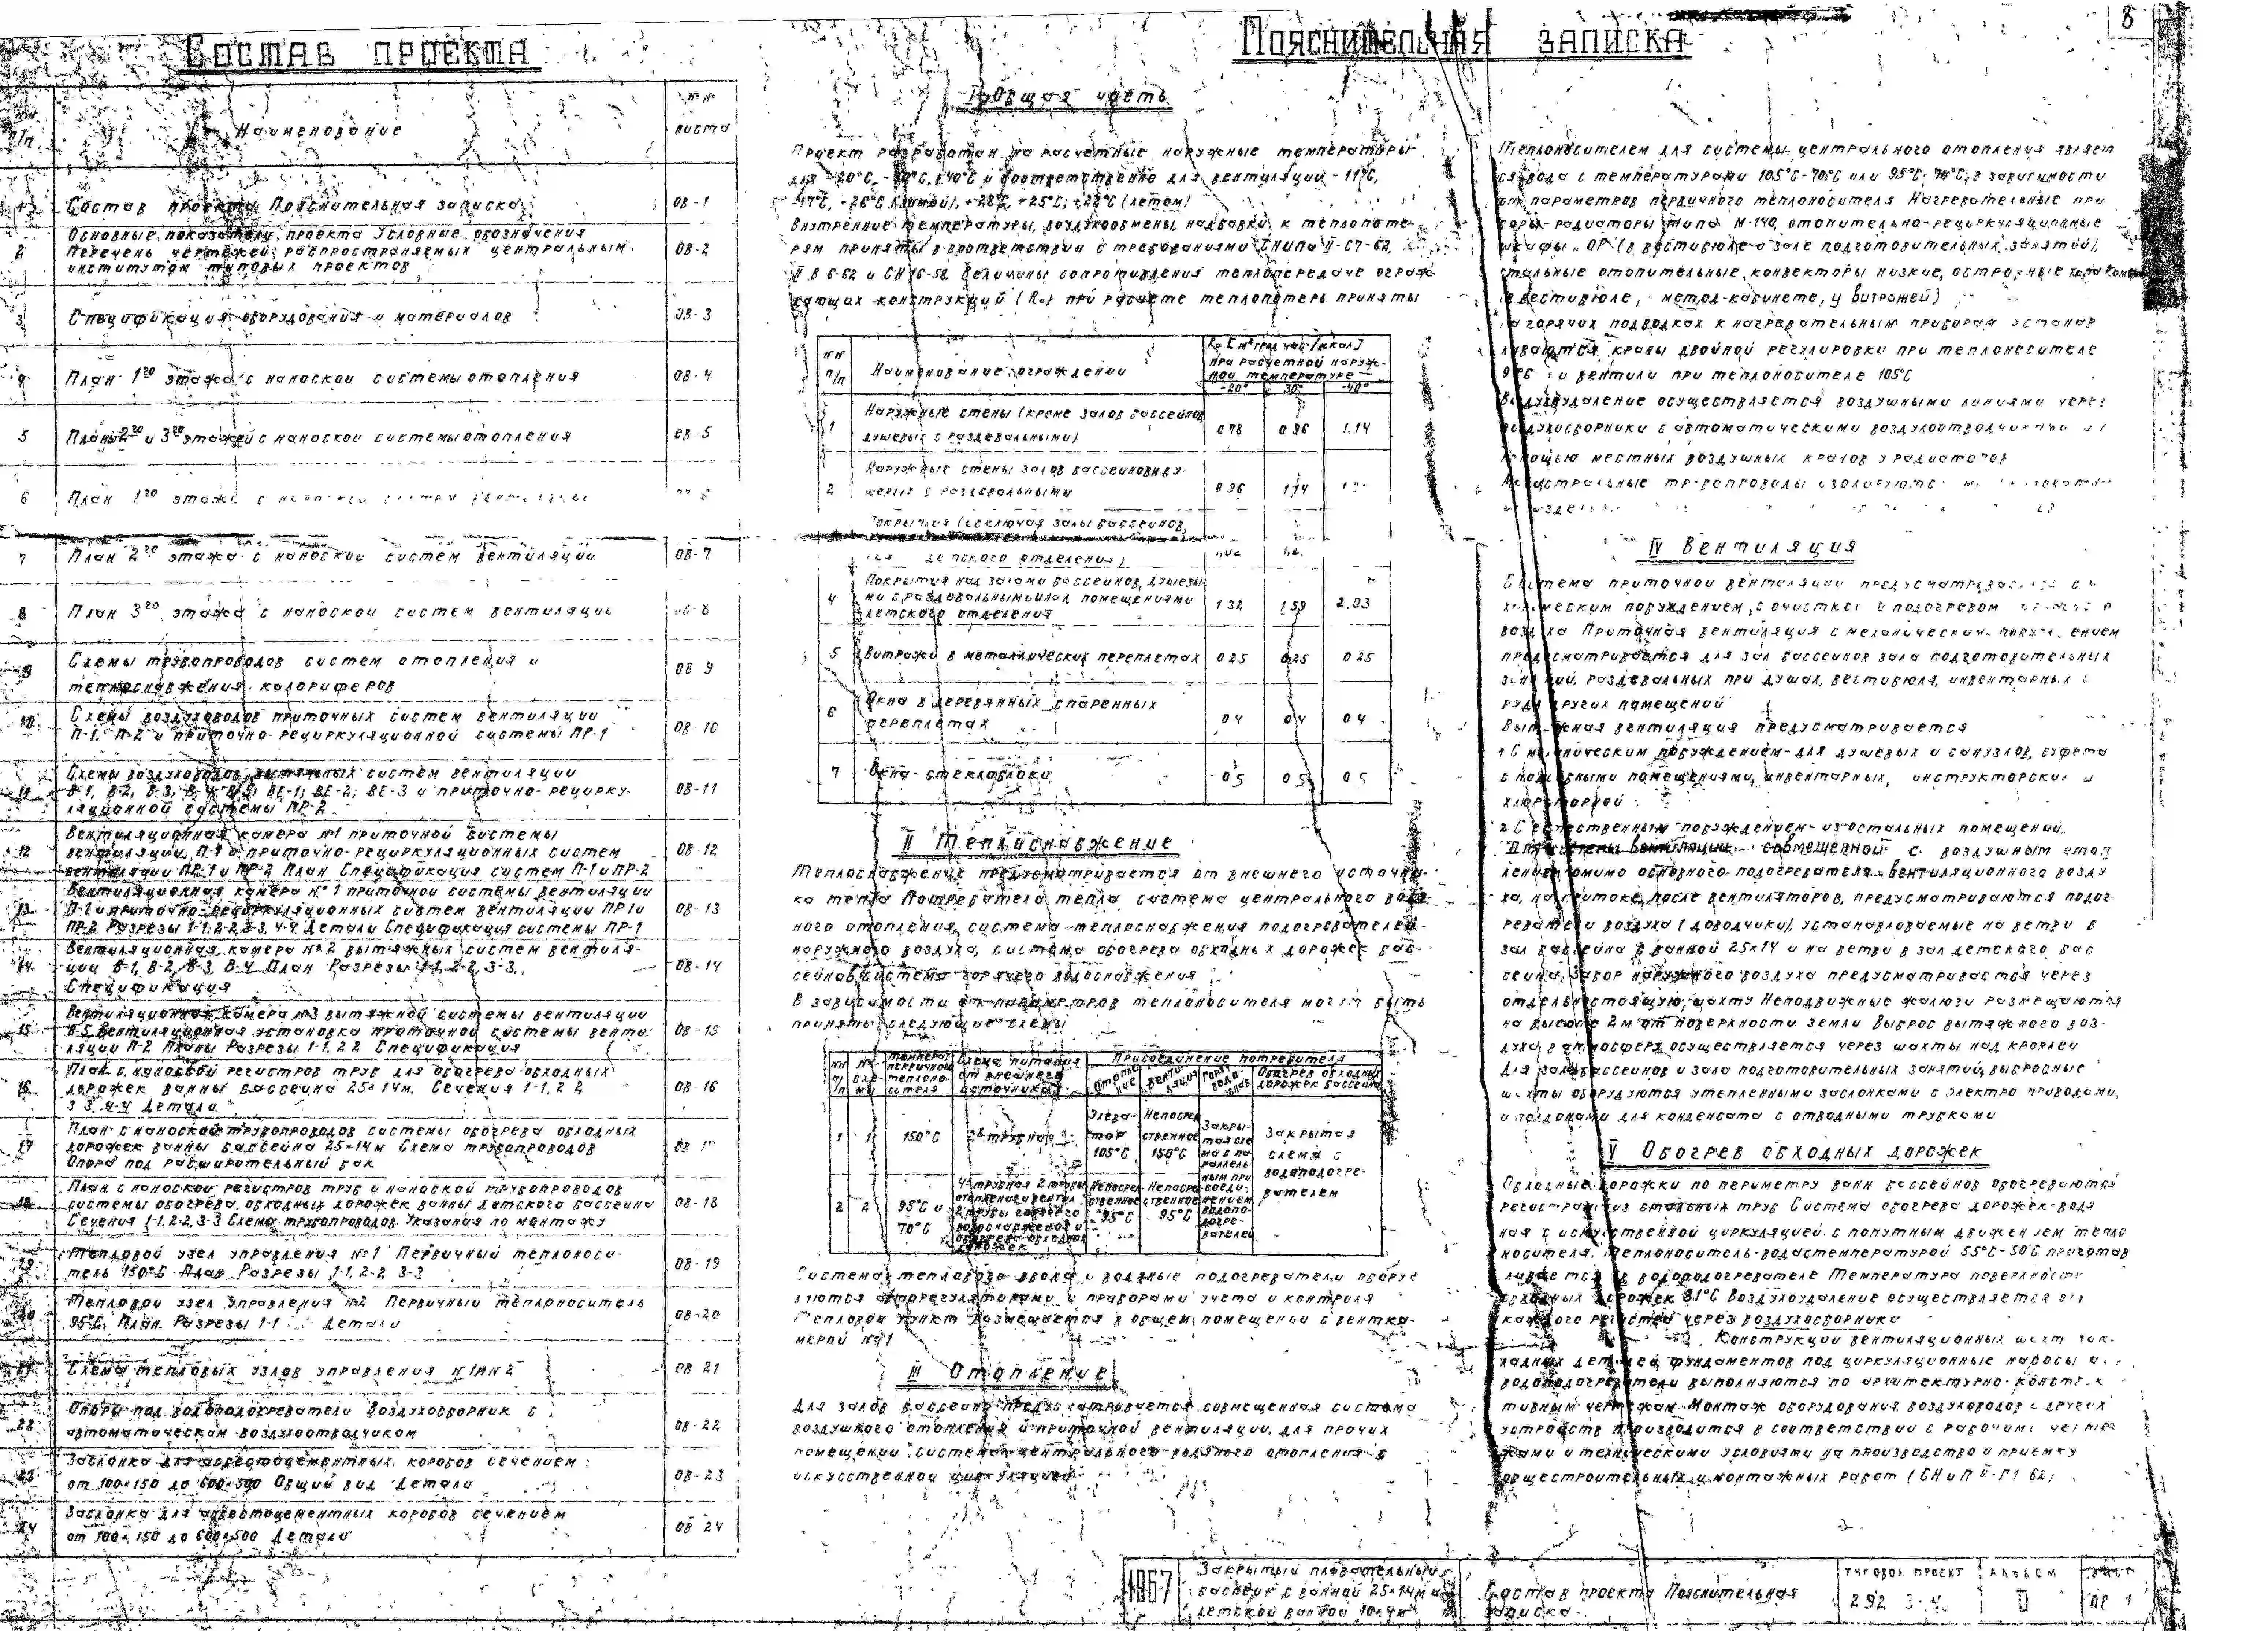 8
Состав проекта
№№ п/п
Наименование
№№ листа
1 Состав проекта Пояснительная записка ОВ-1
2 Основные показатели проекта Условные обозначения
Перечень чертежей, распространяемых центральным ОВ-2
институтом типовых проектов
3 Спецификация оборудования и материалов ОВ-3
4 План 1го этажа с наноской системы отопления ОВ-4
5 Планы 2го и 3го этажей с наноской системы отопления ОВ-5
6 План 1го этажа с
7 План 2го этажа с наноской систем вентиляции ОВ-7
8 План 3го этажа с наноской систем вентиляции ОВ-8
9 Схемы трубопроводов систем отопления и ОВ 9
теплоснабжения калориферов
10 Схемы воздуховодов приточных систем вентиляции
П-1, П-2 и приточно-рециркуляционной системы ПР-1 ОВ-10
11 Схемы воздуховодов вытяжных систем вентиляции
В-1, В-2, В-3, В-4, В-5, ВЕ-1; ВЕ-2; ВЕ-3 и приточно-рецирку- ОВ-11
ляционной системы ПР-2
12 Вентиляционная камера №1 приточной системы
вентиляции П-1 и приточно-рециркуляционных систем ОВ-12
вентиляции ПР-1 и ПР-2 План Спецификация систем П-1 и ПР-2
13 Вентиляционная камера №1 приточной системы вентиляции
П-1 и приточно-рециркуляционных систем вентиляции ПР-1 и ОВ-13
ПР-2 Разрезы 1-1, 2-2, 3-3, 4-4 Детали Спецификация системы ПР-1
14 Вентиляционная камера №2 вытяжных систем вентиля-
ции В-1, В-2, В-3, В-4 План Разрезы 1-1, 2-2, 3-3, ОВ-14
Спецификация
15 Вентиляционная камера №3 вытяжной системы вентиляции
В-5 Вентиляционная установка приточной системы венти- ОВ-15
ляции П-2 Планы Разрезы 1-1, 2 2 Спецификация
16 План с наноской регистров труб для обогрева обходных
дорожек ванны бассейна 25×14м. Сечения 1-1, 2 2 ОВ-16
3 3, 4-4 Детали
17 План с наноской трубопроводов системы обогрева обходных
дорожек ванны бассейна 25×14м Схема трубопроводов ОВ 17
Опора под расширительный бак
18 План с наноской регистров труб и наноской трубопроводов
системы обогрева обходных дорожек ванны детского бассейна ОВ-18
Сечения 1-1, 2-2, 3-3 Схема трубопроводов Указания по монтажу
19 Тепловой узел управления №1 Первичный теплоноси-
тель 150°С План Разрезы 1-1, 2-2, 3-3 ОВ-19
20 Тепловой узел управления №2 Первичный теплоноситель
95°С. План Разрезы 1-1 Детали ОВ-20
21 Схема тепловых узлов управления №1 и №2 ОВ 21
22 Опоры под водоподогреватели Воздухосборник с
автоматическим воздухоотводчиком ОВ-22
23 Заслонка для асбестоцементных коробов сечением
от 100×150 до 600×500 Общий вид Детали ОВ-23
24 Заслонка для асбестоцементных коробов сечением
от 100×150 до 600×500 Детали ОВ 24
Пояснительная записка
I. Общая часть
Проект разработан на расчетные наружные температуры
для -20°С, -30°С, -40°С и соответственно для вентиляции -11°С,
-17°С, -26°С (зимой), +28°С, +25°С, +22°С (летом)
Внутренние температуры, воздухообмены, надбавки к теплопоте-
рям приняты в соответствии с требованиями СНиПа II-Г7-62,
II В 6-62 и СН 16-58 Величины сопротивления теплопередаче ограж-
дающих конструкций (Rо) при расчете теплопотерь приняты
№№ п/п Наименование ограждений Rо [м² град час/ккал] при расчетной наруж- ной температуре
-20° -30° -40°
1 Наружные стены (кроме залов бассейнов,
душевых с раздевальными) 0 78 0 96 1.14
2 Наружные стены залов бассейнов и ду-
шевых с раздевальными 0 96 1,14
Покрытия (исключая залы бассейнов,
детского отделения)
4 Покрытия над залами бассейнов, душевы-
ми с раздевальными и над помещениями 1 32 1 59 2.03
детского отделения
5 Витражи в металлических переплетах 0 25 0,25 0 25
6 Окна в деревянных спаренных
переплетах 0 4 0,4 0 4
7 Окна - стеклоблоки 0 5 0 5 0 5
II Теплоснабжение
Теплоснабжение предусматривается от внешнего источни-
ка тепла Потребители тепла система центрального водя-
ного отопления, система теплоснабжения подогревателей
наружного воздуха, система обогрева обходных дорожек бас-
сейнов, система горячего водоснабжения
В зависимости от параметров теплоносителя могут быть
приняты следующие схемы
№№ п/п №№ схе- мы Температ первичного теплоно- сителя Схема питания от внешнего источника Присоединение потребителя
Отопле- ние Венти- ляция Горяч водо- снаб Обогрев обходных дорожек бассейна
1 1 150°С 2х трубная Элева- тор 105°С Непосред ственное 150°С Закры- тая схе ма с па раллель ным при соеди- нением водопо- догре- вателей Закрытая схема с водоподогре- вателем
2 2 95°С и 70°С 4х трубная 2 трубы отопление и вентил 2 трубы горячего водоснабжения и обогрева обходных дорожек Непосред ственное 95°С Непосред ственное 95°С
Система теплового ввода и водяные подогреватели обору-
дуются авторегуляторами и приборами учета и контроля
Тепловой пункт размещается в общем помещении с вентка-
мерой №1
III Отопление
Для залов бассейна предусматривается совмещенная система
воздушного отопления и приточной вентиляции, для прочих
помещений система центрального водяного отопления с
искусственной циркуляцией
Теплоносителем для системы центрального отопления являет
ся вода с температурами 105°С-70°С или 95°С-70°С, в зависимости
от параметров первичного теплоносителя Нагревательные при
боры-радиаторы типа М-140, отопительно-рециркуляционные
шкафы „ОР" (в вестибюле и зале подготовительных занятий),
стальные отопительные конвекторы низкие, островные типа
(в вестибюле, метод-кабинете, у витражей)
На горячих подводках к нагревательным приборам устанав
ливаются краны двойной регулировки при теплоносителе
95°С и вентили при теплоносителе 105°С
Воздухоудаление осуществляется воздушными линиями через
воздухосборники с автоматическими воздухоотводчиками и с
помощью местных воздушных кранов у радиаторов
Магистральные трубопроводы изолируются
IV Вентиляция
Система приточной вентиляции предусматривается с ме-
ханическим побуждением, с очисткой и подогревом
воздуха Приточная вентиляция с механическим побуждением
предусматривается для зал бассейнов зала подготовительных
занятий, раздевальных при душах, вестибюля, инвентарных и
ряда других помещений
Вытяжная вентиляция предусматривается
1 С механическим побуждением - для душевых и санузлов, буфета
с подсобными помещениями, инвентарных, инструкторских и
хлораторной
2 С естественным побуждением - из остальных помещений
Для системы вентиляции совмещенной с воздушным отоп
лением помимо основного подогревателя вентиляционного возду
ха, на притоке, после вентиляторов, предусматриваются подог-
реватели воздуха (доводчики), установливаемые на ветви в
зал бассейна с ванной 25×14 и на ветви в зал детского бас
сейна. Забор наружного воздуха предусматривается через
отдельностоящую шахту Неподвижные жалюзи размещаются
на высоте 2м от поверхности земли Выброс вытяжного воз-
духа в атмосферу осуществляется через шахты над кровлей
Для зала бассейнов и зала подготовительных занятий, выбросные
шахты оборудуются утепленными заслонками с электро приводами,
и поддонами для конденсата с отводными трубками
V Обогрев обходных дорожек
Обходные дорожки по периметру ванн бассейнов обогреваются
регистрами из стальных труб Система обогрева дорожек-водя
ная с искусственной циркуляцией с попутным движением тепло
носителя. Теплоноситель-вода с температурой 55°С-50°С приготав
ливается в водоподогревателе Температура поверхности
обходных дорожек 31°С Воздухоудаление осуществляется от
каждого регистра через воздухосборники
Конструкции вентиляционных шахт, зак-
ладных деталей, фундаментов под циркуляционные насосы и
водоподогреватели выполняются по архитектурно-констр
тивным чертежам Монтаж оборудования, воздуховодов и других
устройств производится в соответствии с рабочими черте
жами и техническими условиями на производство и приемку
общестроительных и монтажных работ (СНиП II-Г1 62)
1967
Закрытый плавательный
бассейн с ванной 25×14м и
детской ванной 10×4м
Состав проекта Пояснительная
записка
Типовой проект
292 3-4
Альбом
II
Лист